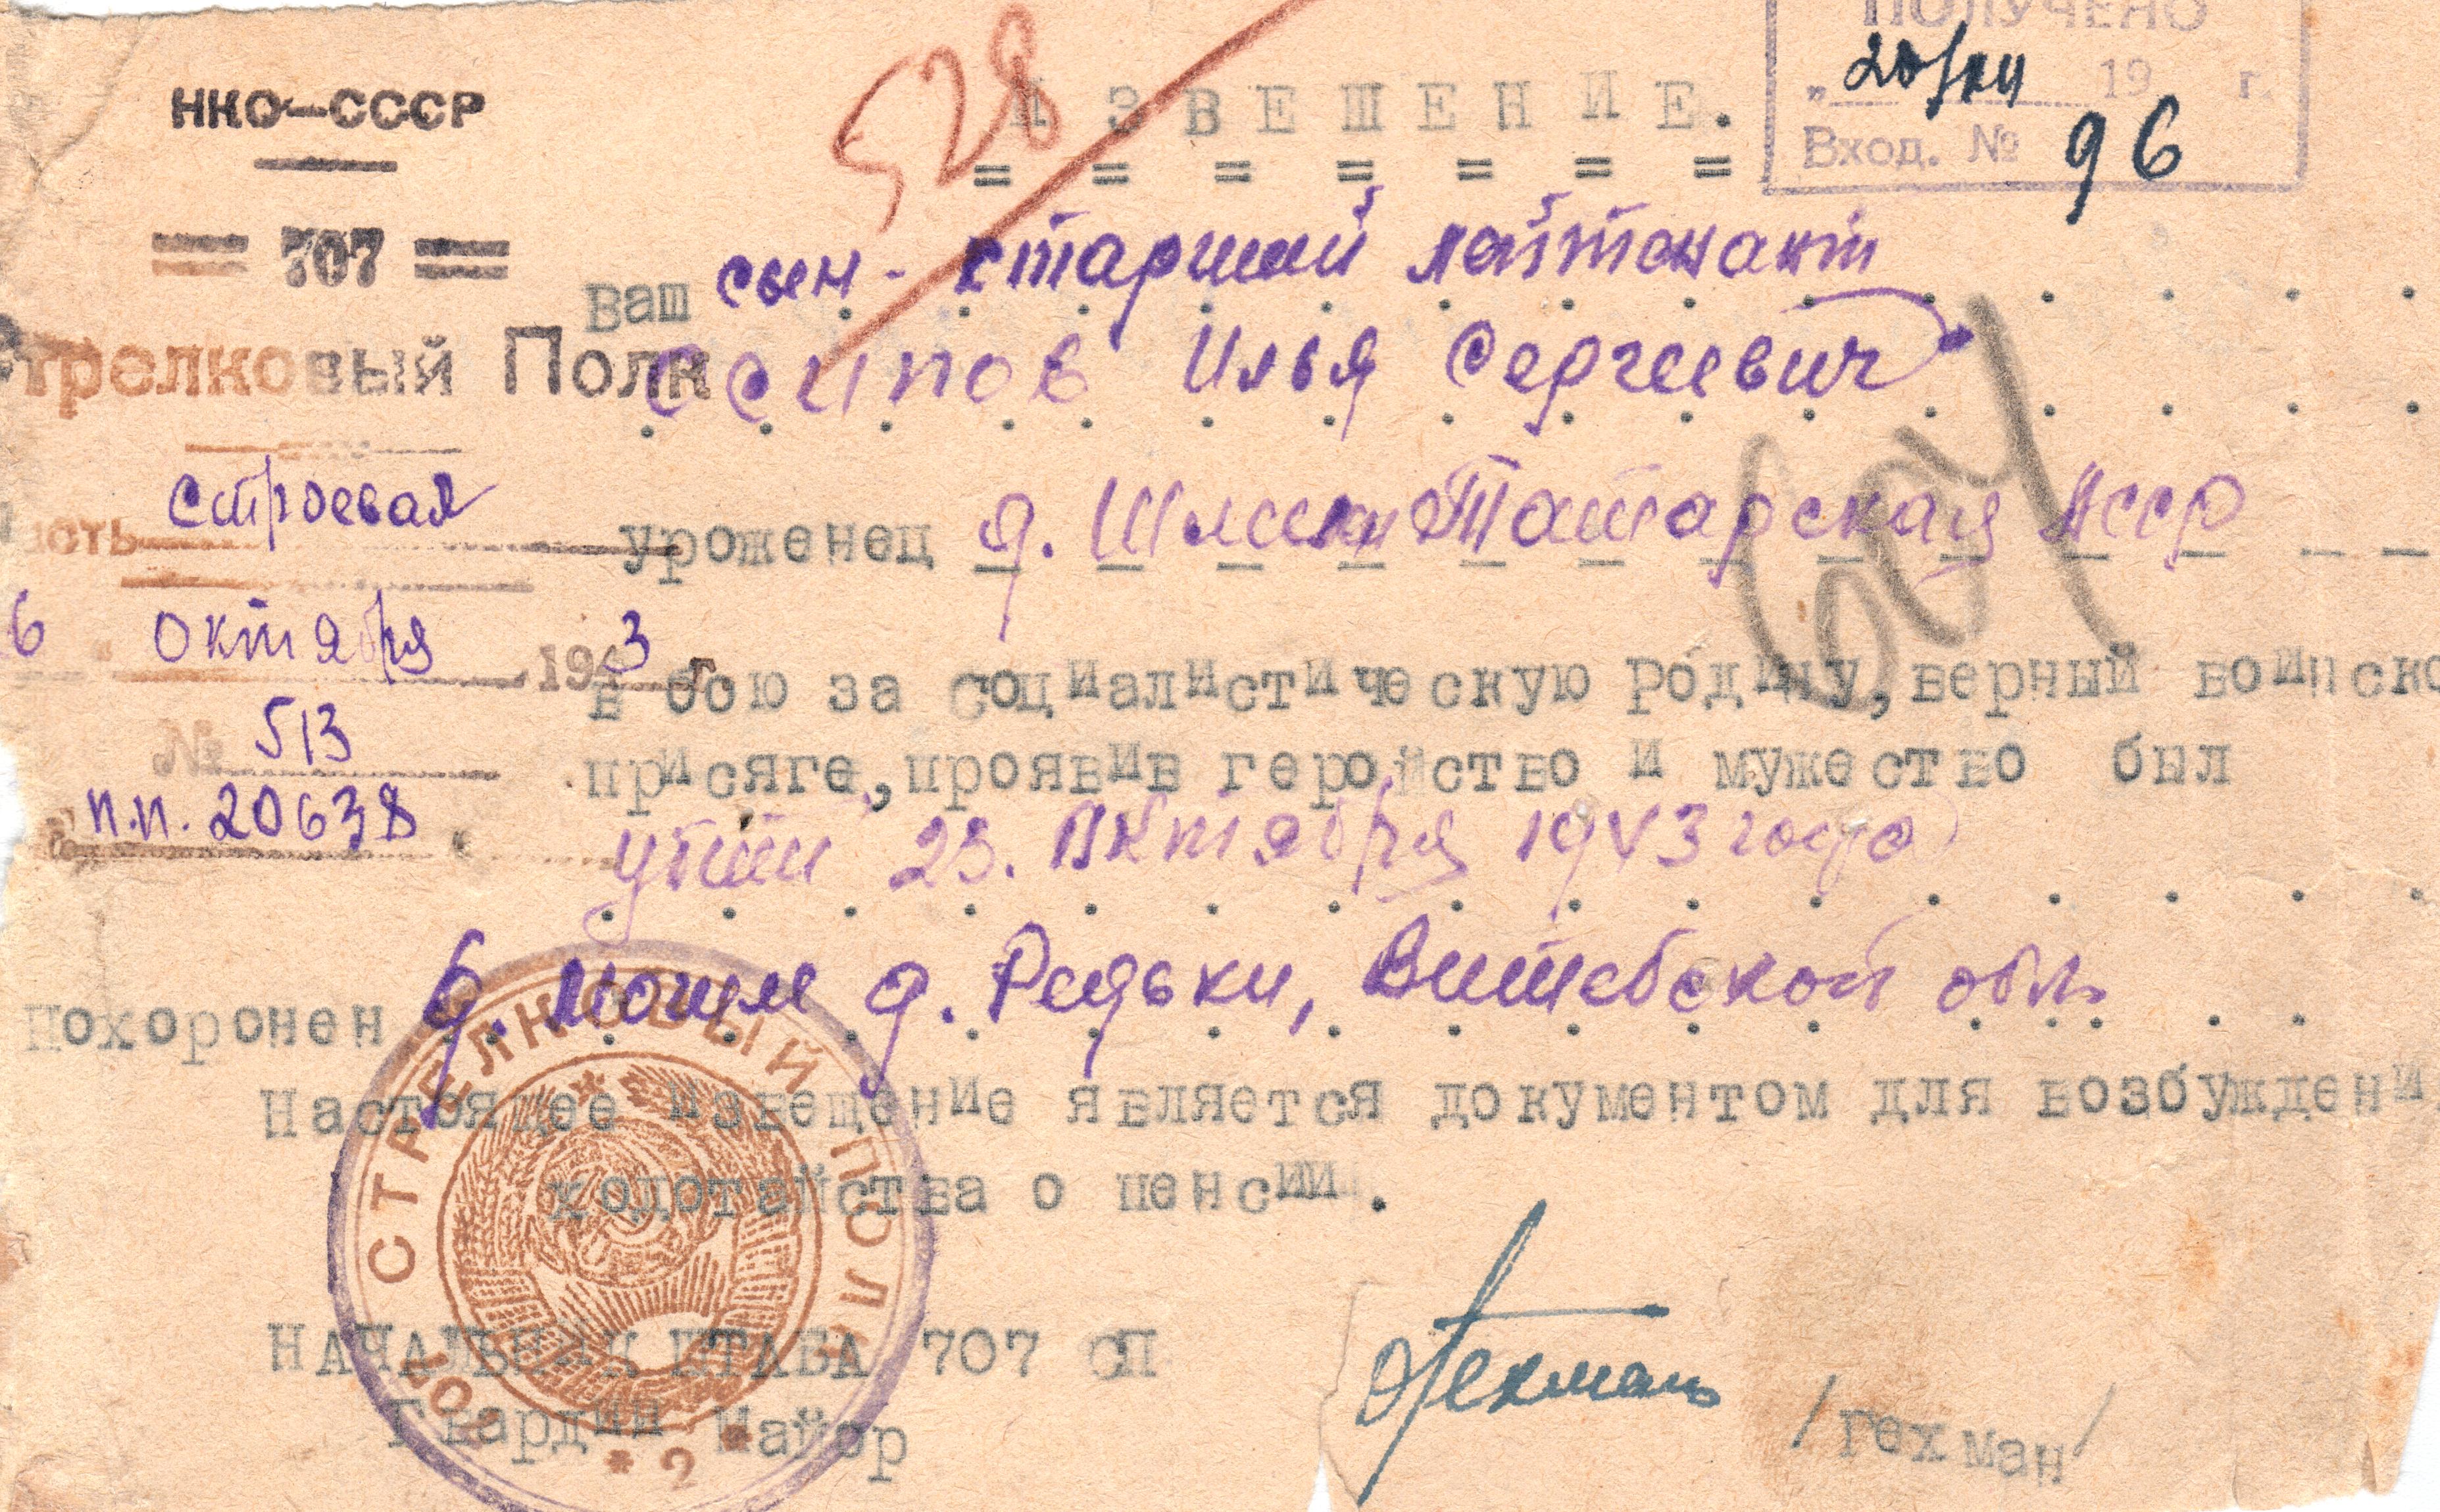 ПОЛУЧЕНО
" 20/XII 19 г.
Вход. № 96
528
НКО—СССР
= 707 =
Стрелковый Полк
часть Строевая
6 октября 1943 г.
№ 513
п.п. 20638
ИЗВЕЩЕНИЕ.
= = = = = = =
Ваш сын - старший лейтенант
Осипов Илья Сергеевич
604
уроженец д. Татарская АССР
в бою за социалистическую Родину, верный воинско
присяге, проявив геройство и мужество был
убит 23. Октября 1943 года
Похоронен д. Редьки, Витебской обл.
Настоящее извещение является документом для возбуждени
ходотайства о пенсии.
НАЧАЛЬНИК ШТАБА 707 СП
Гвардии Майор
Гехман /Гехман/
СТРЕЛКОВЫЙ ПОЛК 707
* 2 *